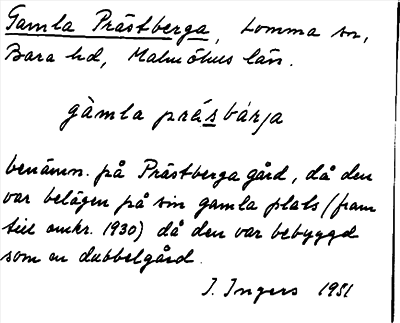 Gamla Prästberga, Lomma sn,
Bara hd, Malmöhus län.
gàmla präsbárja
benämn. på Prästberga gård, då den
var belägen på sin gamla plats (fram
till omkr. 1930) då den var bebyggd
som en dubbelgård.
J. Ingers 1951